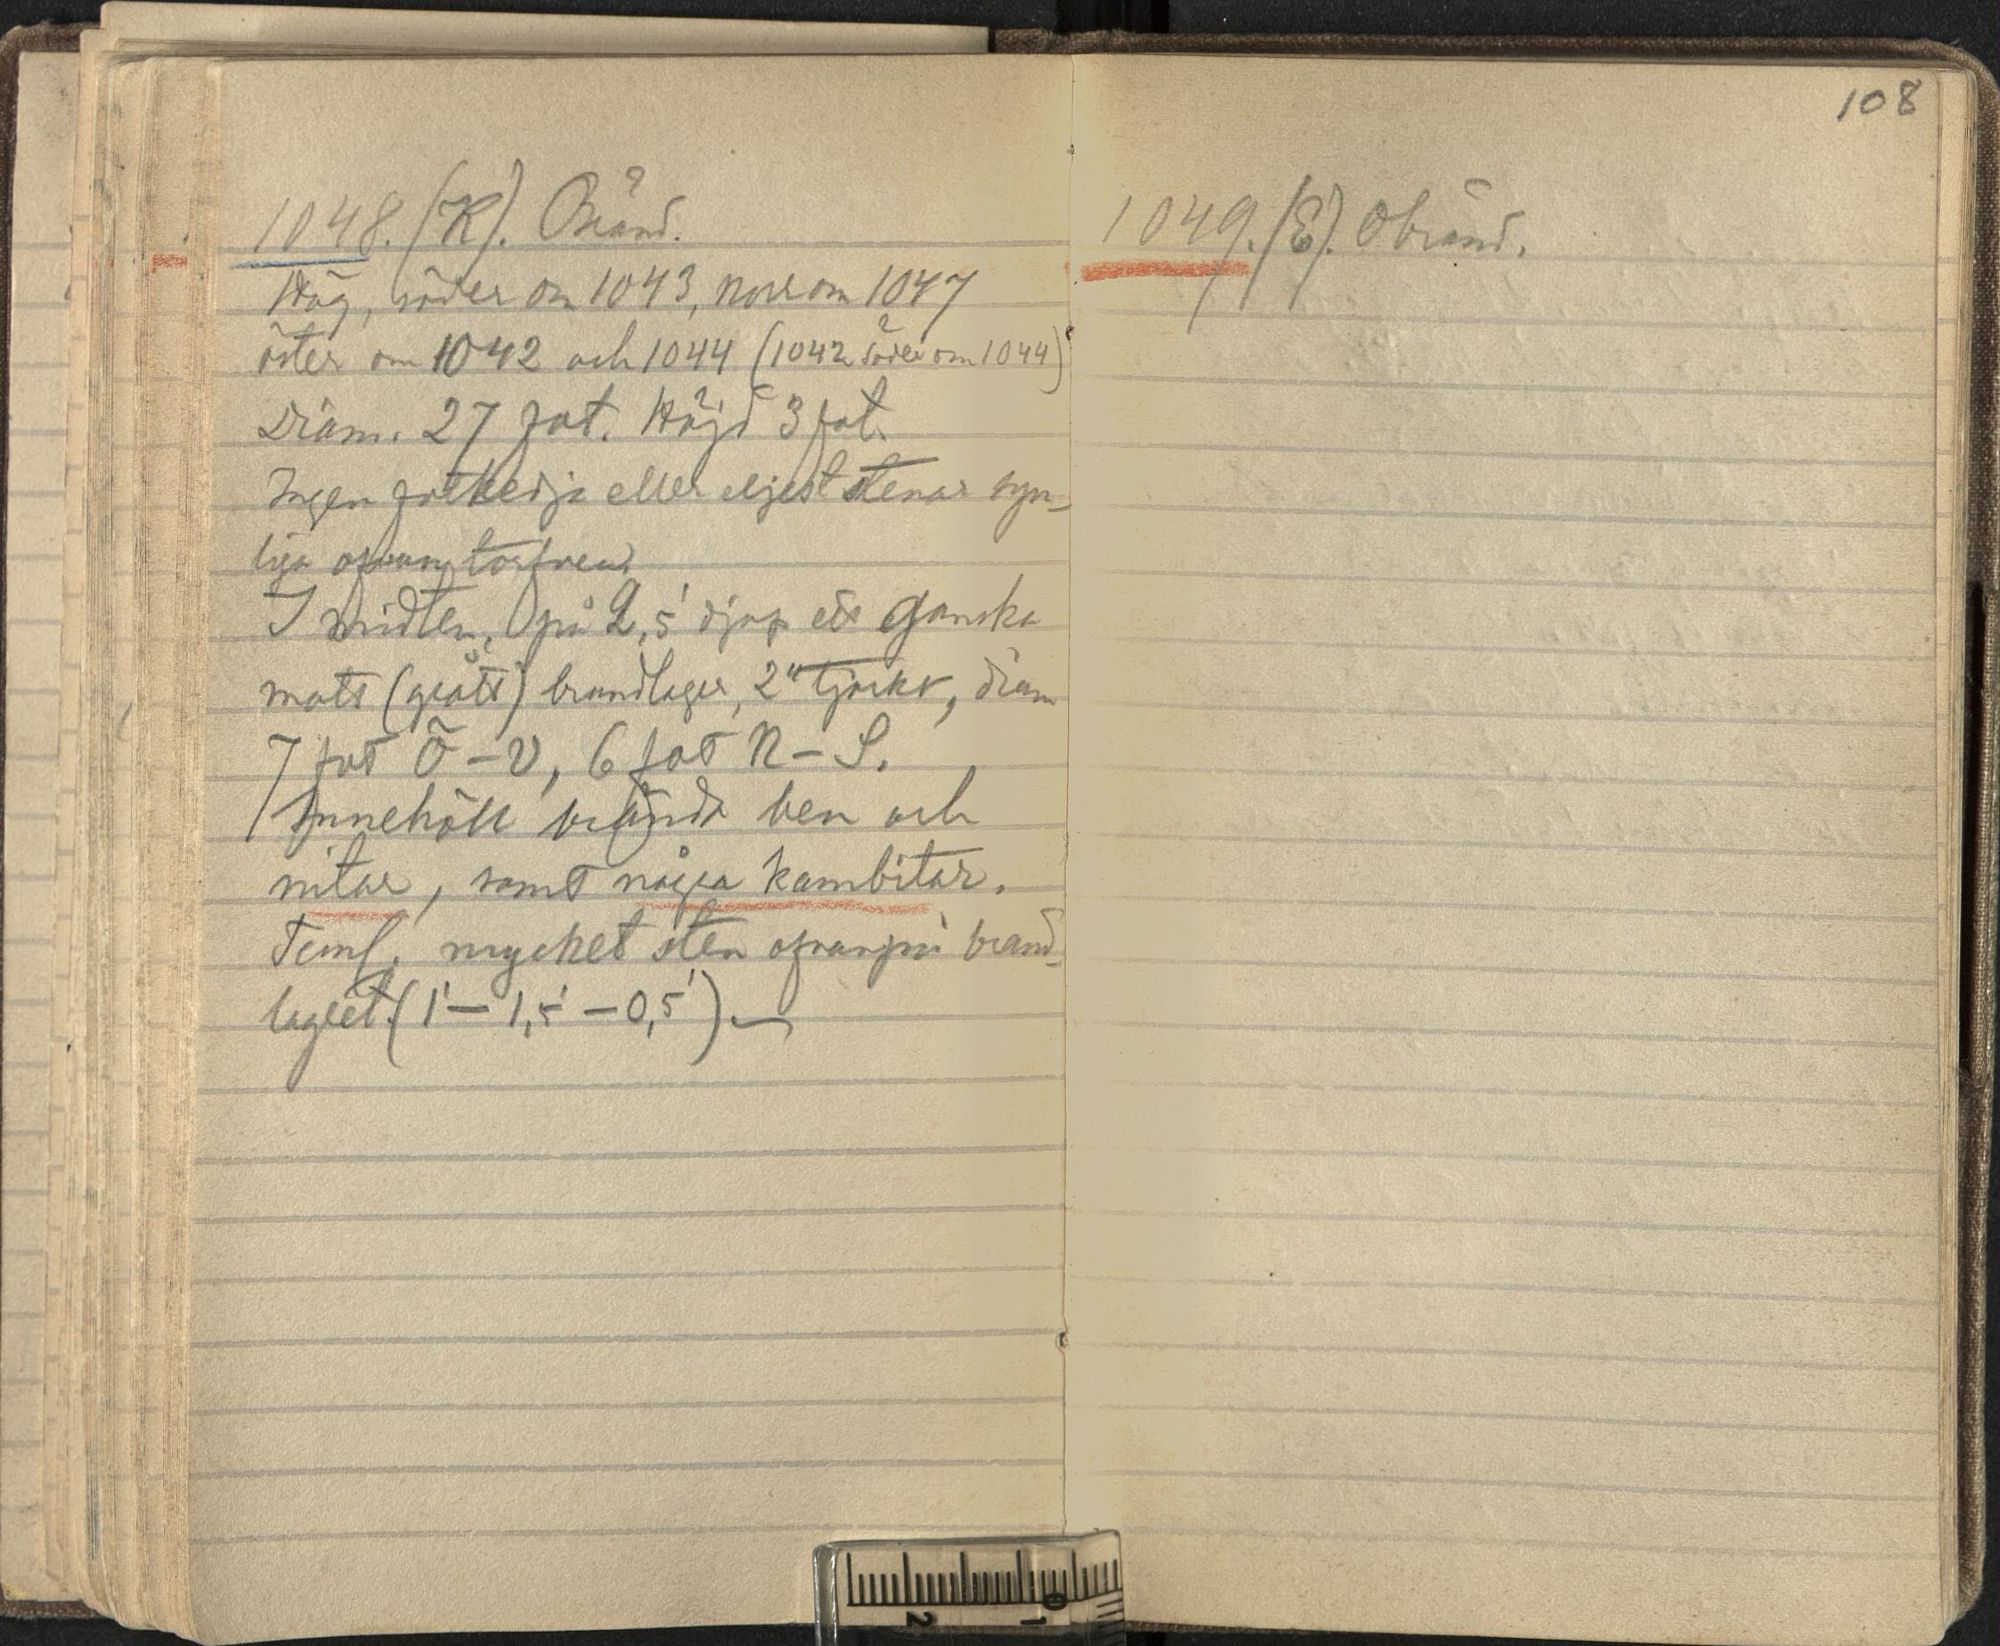 1048. (K). Bränd.
Hög, söder om 1043, norr om 1047
öster om 1042 och 1044 (1042 söder om 1044)
Diam. 27 fot. Höjd 3 fot.
Ingen fotkedja eller eljest stenar syn-
liga ofvan torfven.
I midten, på 2,5' djup ett ganska
matt (grått) brandlager, 2" tjockt, diam
7 fot Ö – V, 6 fot N – S.
Innehöll brända ben och
nitar, samt några kambitar.
Teml. mycket sten ofvanpå brand-
lagret. (1' – 1,5' – 0,5')
108
1049. (E). Obränd.
2 1 0